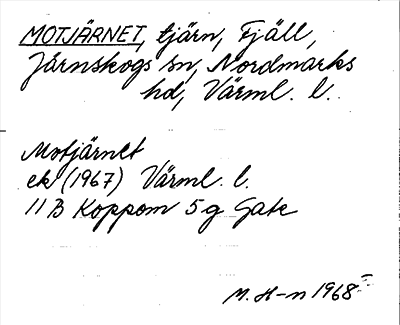 MOTJÄRNET, tjärn, Fjäll,
Järnskogs sn, Nordmarks
hd, Värml. l.
Motjärnet
ek (1967) Värml. l.
11 B Koppom 5 g Gate
M. H-n 1968